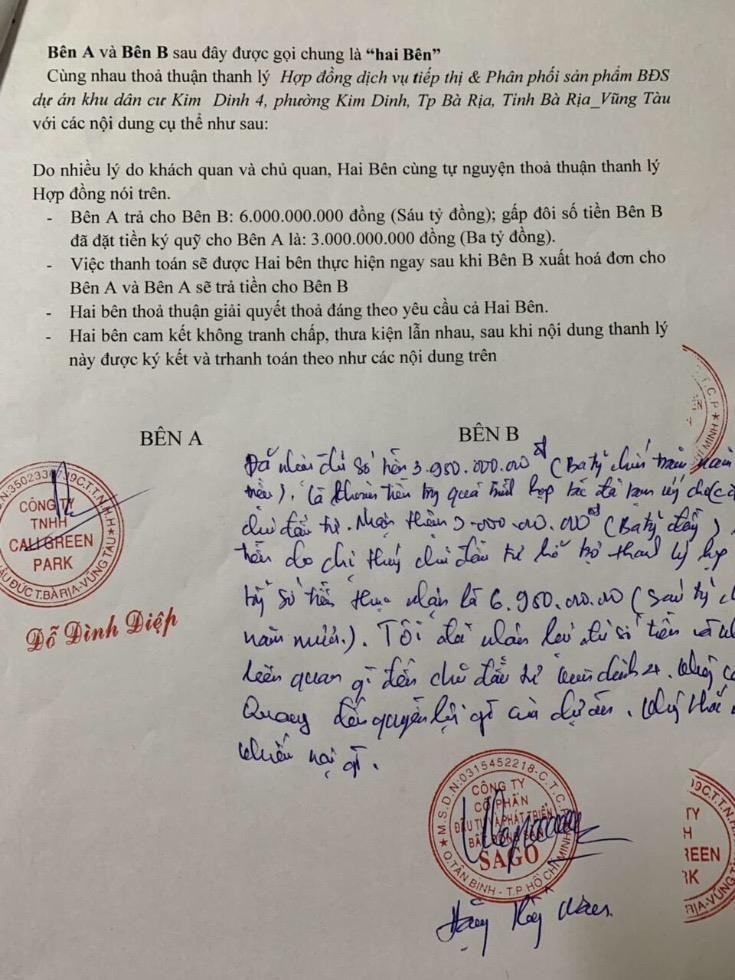 Bên A và Bên B sau đây được gọi chung là “hai Bên”
Cùng nhau thoả thuận thanh lý Hợp đồng dịch vụ tiếp thị & Phân phối sản phẩm BĐS
dự án khu dân cư Kim Dinh 4, phường Kim Dinh, Tp Bà Rịa, Tỉnh Bà Rịa_Vũng Tàu
với các nội dung cụ thể như sau:
Do nhiều lý do khách quan và chủ quan, Hai Bên cùng tự nguyện thoả thuận thanh lý
Hợp đồng nói trên.
- Bên A trả cho Bên B: 6.000.000.000 đồng (Sáu tỷ đồng); gấp đôi số tiền Bên B
đã đặt tiền ký quỹ cho Bên A là: 3.000.000.000 đồng (Ba tỷ đồng).
- Việc thanh toán sẽ được Hai bên thực hiện ngay sau khi Bên B xuất hoá đơn cho
Bên A và Bên A sẽ trả tiền cho Bên B
- Hai bên thoả thuận giải quyết thoả đáng theo yêu cầu cả Hai Bên.
- Hai bên cam kết không tranh chấp, thưa kiện lẫn nhau, sau khi nội dung thanh lý
này được ký kết và trhanh toán theo như các nội dung trên
BÊN A
BÊN B
Đã nhận đủ số tiền 3.950.000.000đ (Ba tỷ chín trăm năm
triệu). là khoản tiền trong quá trình hợp tác đã tạm ứng cho
chủ đầu tư. Nhận thêm 3.000.000.000đ (Ba tỷ đồng)
tiền do chị Thuý chủ đầu tư hỗ trợ thanh lý hợp
số tiền thực nhận là 6.950.000.000 (Sáu tỷ
năm mươi). Tôi đã nhận đủ số tiền và
liên quan gì đến chủ đầu tư Kim Dinh 4.
quan đến quyền lợi gì của dự án.
khiếu nại gì.
CÔNG TY
TNHH
CALI GREEN
PARK
Đỗ Đình Diệp
M.S.D.N:0315452218-C.T.C.P
CÔNG TY
CỔ PHẦN
ĐẦU TƯ VÀ PHÁT TRIỂN
BẤT ĐỘNG SẢN
SAGO
Q.TÂN BÌNH - T.P HỒ CHÍ MINH